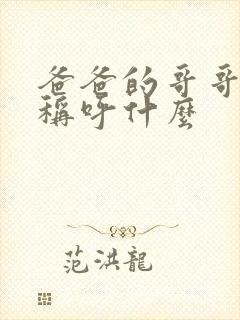 爸爸的哥哥
稱呼什麼
范洪龍